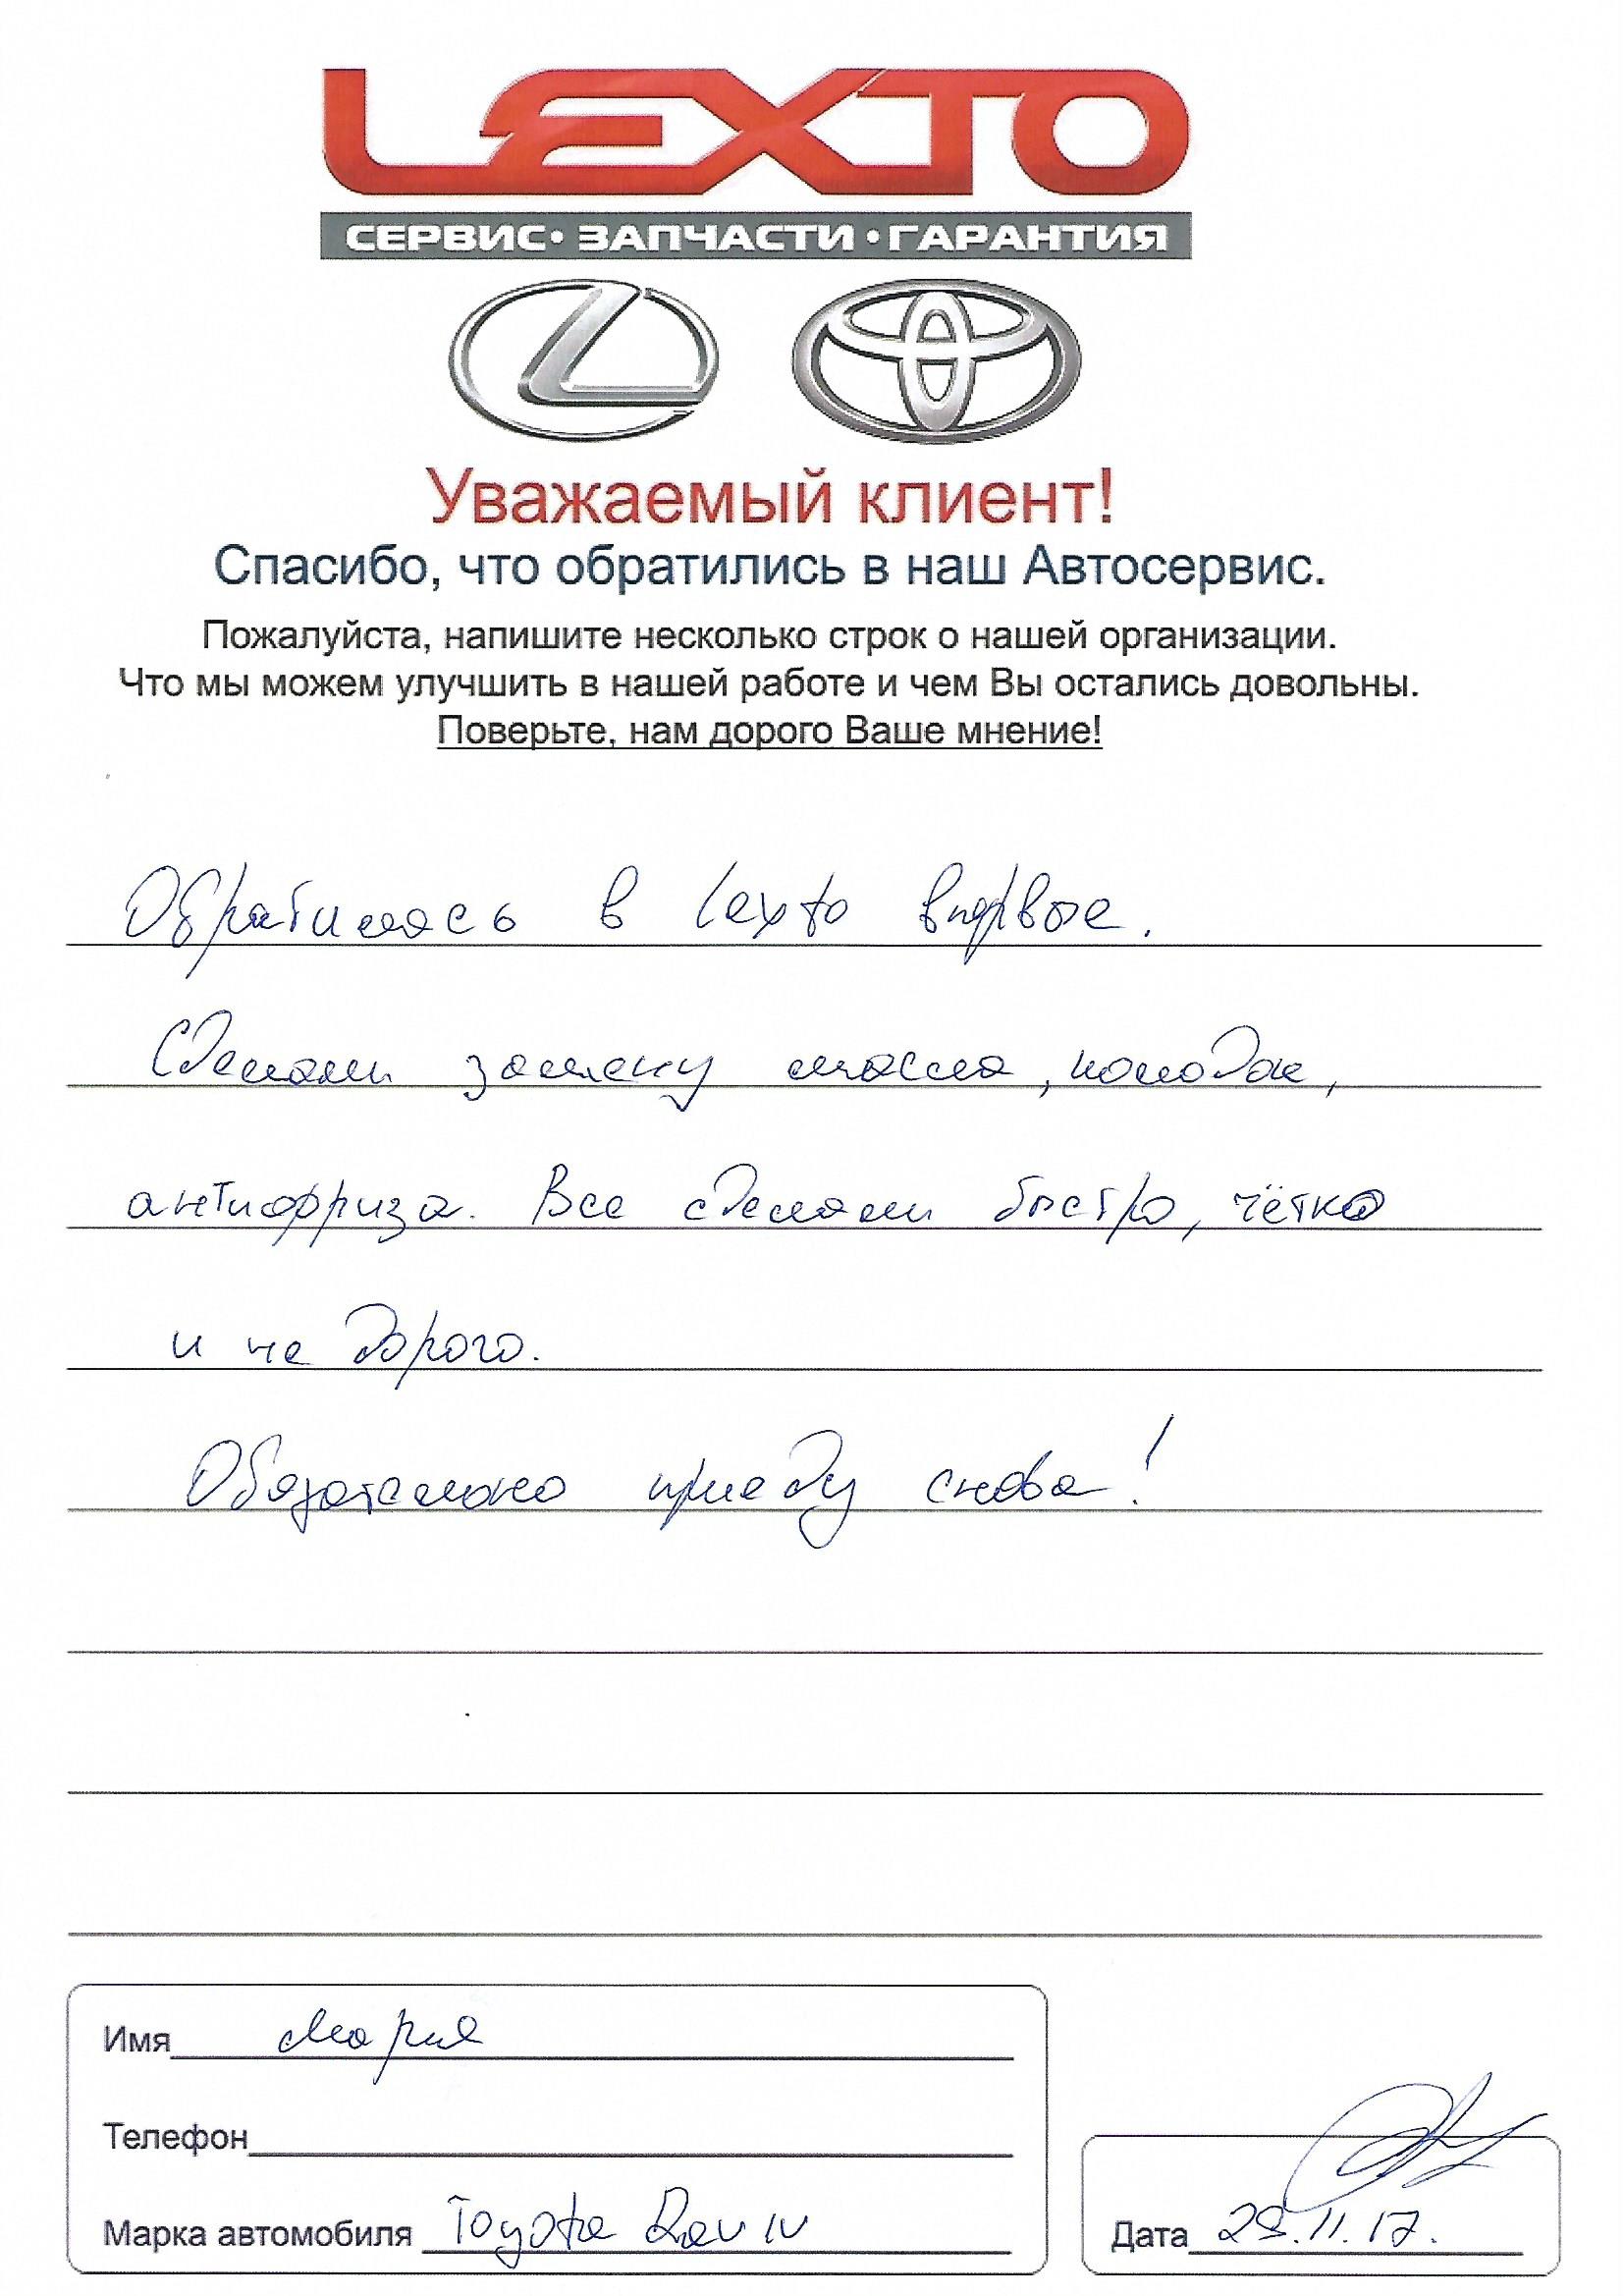 LEXTO
СЕРВИС • ЗАПЧАСТИ • ГАРАНТИЯ
Уважаемый клиент!
Спасибо, что обратились в наш Автосервис.
Пожалуйста, напишите несколько строк о нашей организации.
Что мы можем улучшить в нашей работе и чем Вы остались довольны.
Поверьте, нам дорого Ваше мнение!
Обратилась в Lexto впервые.
Сделали замену масла, колодок,
антифриза. Все сделали быстро, чётко
и не дорого.
Обязательно приеду снова!
Имя Мария
Телефон
Марка автомобиля Toyota Rav IV
Дата 29.11.17.